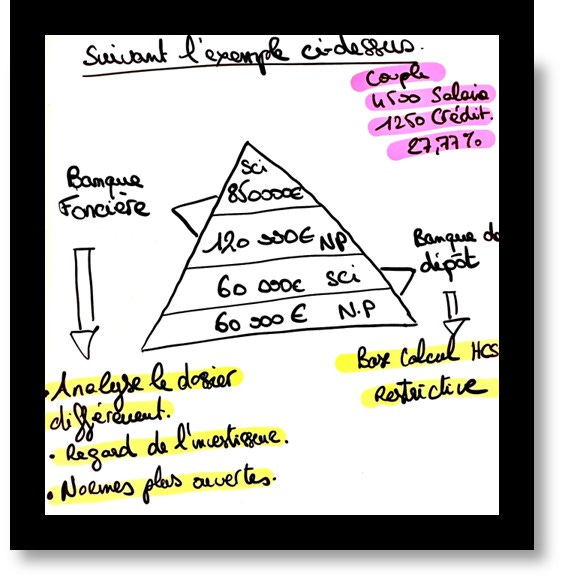 Suivant l'exemple ci-dessus.
Couple
4500 Salaire
1250 Crédit.
27,77%
Banque
Foncière
SCI
850000€
120 000€ NP
60 000€ SCI
60 000 € N.P
Banque de
dépôt
• Analyse le dossier
différement.
• Regard de l'investisseur.
• Normes plus ouvertes.
Base Calcul HCS
Restrictive